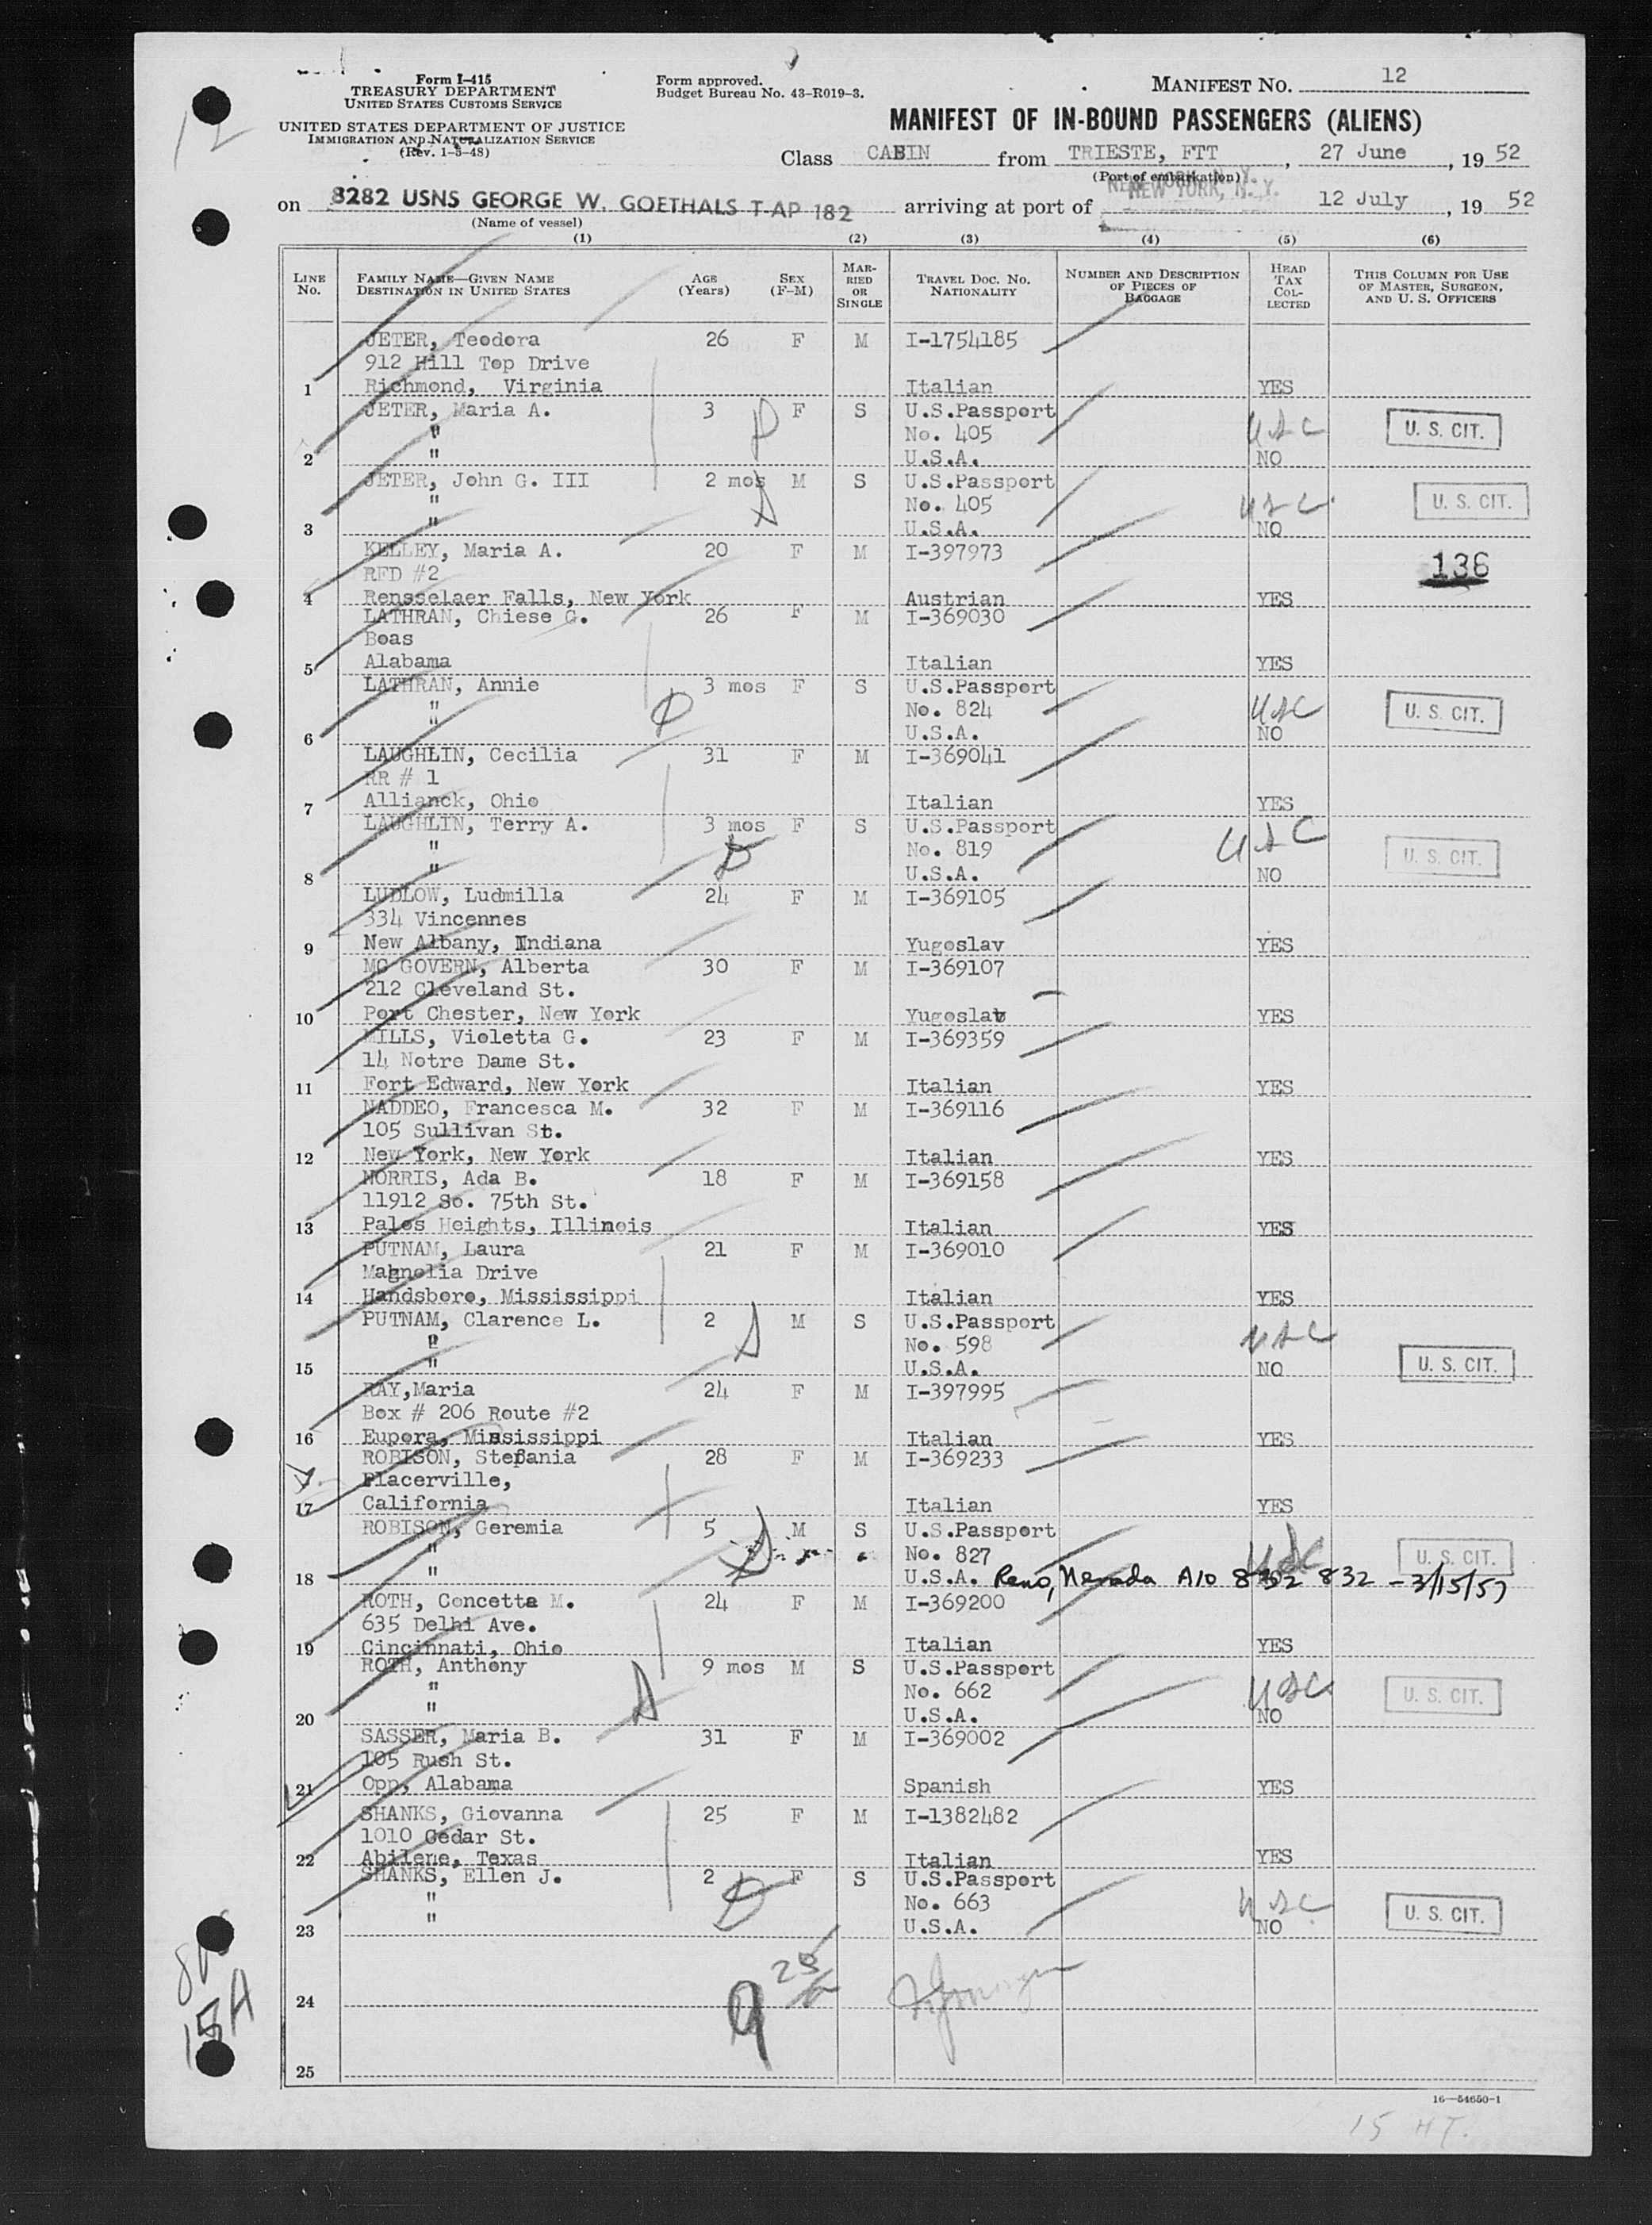 12
Form I-415
TREASURY DEPARTMENT
UNITED STATES CUSTOMS SERVICE
UNITED STATES DEPARTMENT OF JUSTICE
IMMIGRATION AND NATURALIZATION SERVICE
(Rev. 1-3-48)
Form approved.
Budget Bureau No. 43-R019-3.
MANIFEST NO. 12
MANIFEST OF IN-BOUND PASSENGERS (ALIENS)
Class CABIN from TRIESTE, FTT, 27 June, 19 52
(Port of embarkation)
on 8282 USNS GEORGE W. GOETHALS T-AP 182 arriving at port of NEW YORK, N.Y. 12 July, 19 52
(Name of vessel)
(1) (2) (3) (4) (5) (6)
LINE No. FAMILY NAME—GIVEN NAME DESTINATION IN UNITED STATES AGE (Years) SEX (F-M) MARRIED OR SINGLE TRAVEL DOC. NO. NATIONALITY NUMBER AND DESCRIPTION OF PIECES OF BAGGAGE HEAD TAX COLLECTED THIS COLUMN FOR USE OF MASTER, SURGEON, AND U. S. OFFICERS
JETER, Teodora 26 F M I-1754185
912 Hill Top Drive
1 Richmond, Virginia Italian YES
JETER, Maria A. 3 F S U.S.Passport
" No. 405 USC U. S. CIT.
2 " U.S.A. NO
JETER, John G. III 2 mos M S U.S.Passport
" No. 405 USC U. S. CIT.
3 " U.S.A. NO
KELLEY, Maria A. 20 F M I-397973
RFD #2 136
4 Rensselaer Falls, New York Austrian YES
LATHRAN, Chiese G. 26 F M I-369030
Boas
5 Alabama Italian YES
LATHRAN, Annie 3 mos F S U.S.Passport
" No. 824 USC U. S. CIT.
6 " U.S.A. NO
LAUGHLIN, Cecilia 31 F M I-369041
RR # 1
7 Allianck, Ohio Italian YES
LAUGHLIN, Terry A. 3 mos F S U.S.Passport
" No. 819 USC U. S. CIT.
8 " U.S.A. NO
LUDLOW, Ludmilla 24 F M I-369105
334 Vincennes
9 New Albany, Indiana Yugoslav YES
MC GOVERN, Alberta 30 F M I-369107
212 Cleveland St.
10 Port Chester, New York Yugoslav YES
MILLS, Violetta G. 23 F M I-369359
14 Notre Dame St.
11 Fort Edward, New York Italian YES
NADDEO, Francesca M. 32 F M I-369116
105 Sullivan St.
12 New York, New York Italian YES
NORRIS, Ada B. 18 F M I-369158
11912 So. 75th St.
13 Palos Heights, Illinois Italian YES
PUTNAM, Laura 21 F M I-369010
Magnolia Drive
14 Handsboro, Mississippi Italian YES
PUTNAM, Clarence L. 2 M S U.S.Passport
" No. 598 USC
15 " U.S.A. NO U. S. CIT.
RAY,Maria 24 F M I-397995
Box # 206 Route #2
16 Eupora, Mississippi Italian YES
ROBISON, Stefania 28 F M I-369233
Placerville,
17 California Italian YES
ROBISON, Geremia 5 M S U.S.Passport
" No. 827 USC U. S. CIT.
18 " U.S.A. Reno, Nevada A10 832 832 - 3/15/57
ROTH, Concetta M. 24 F M I-369200
635 Delhi Ave.
19 Cincinnati, Ohio Italian YES
ROTH, Anthony 9 mos M S U.S.Passport
" No. 662 USC U. S. CIT.
20 " U.S.A. NO
SASSER, Maria B. 31 F M I-369002
105 Rush St.
21 Opp, Alabama Spanish YES
SHANKS, Giovanna 25 F M I-1382482
1010 Cedar St.
22 Abilene, Texas Italian YES
SHANKS, Ellen J. 2 F S U.S.Passport
" No. 663 USC U. S. CIT.
23 " U.S.A. NO
9
24
15A
25
16—54650-1
15 HT.